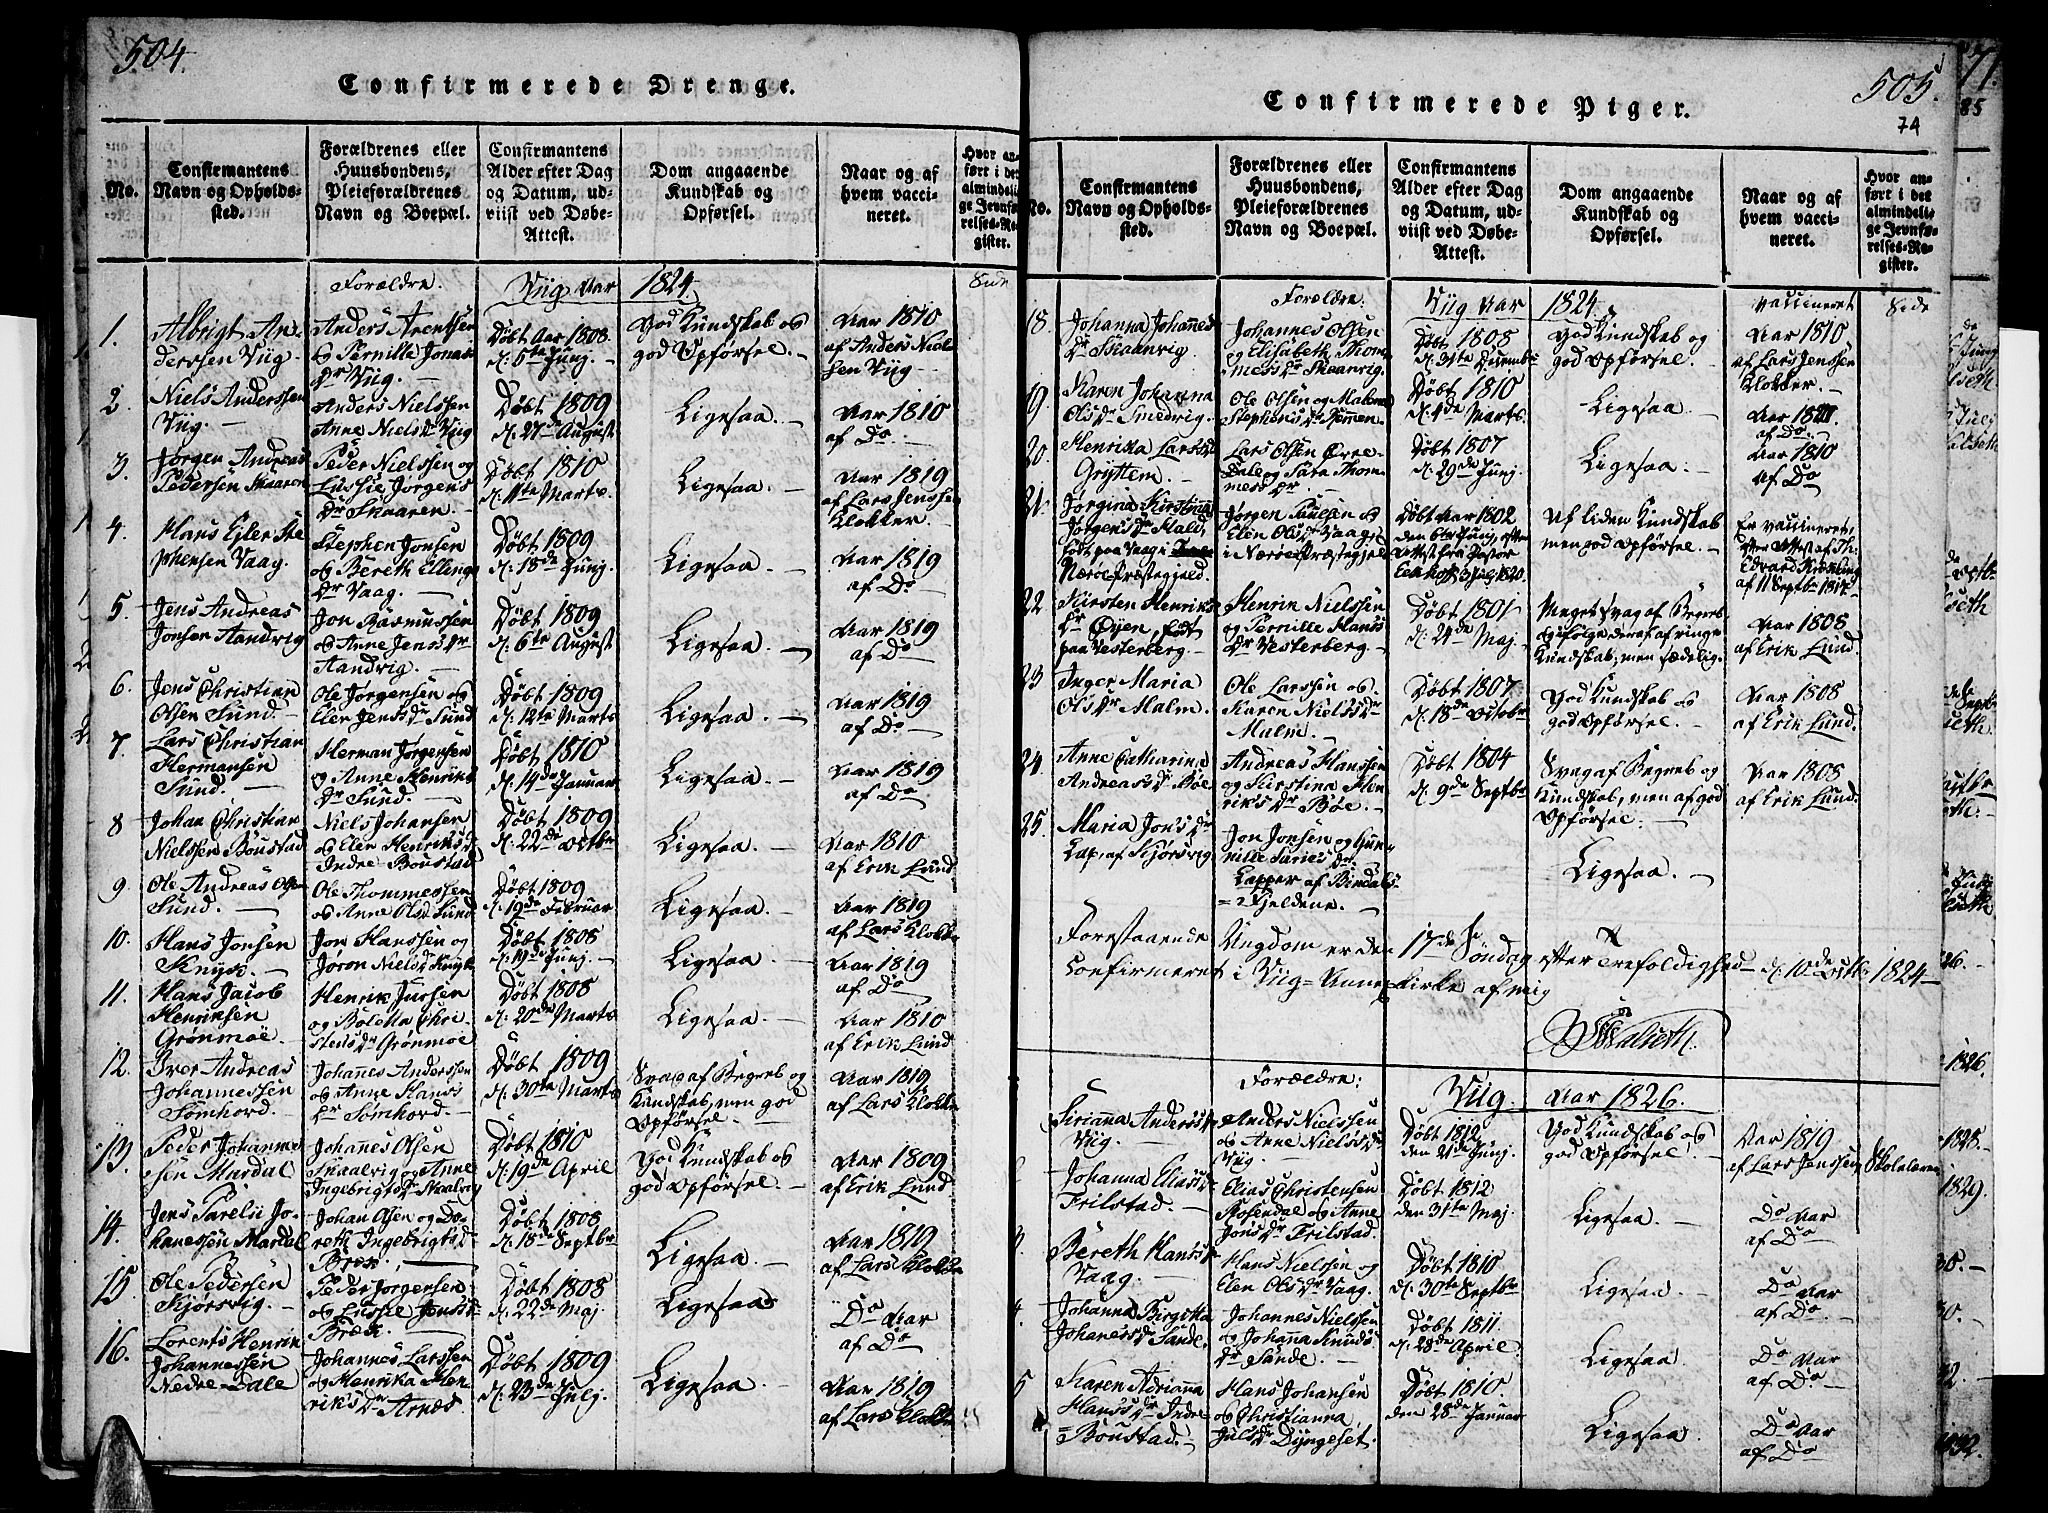 504.
Confirmerede Drenge.
No.
Confirmantens Navn og Opholds-sted.
Forældrenes eller Huusbondens, Pleieforældrenes Navn og Boepæl.
Confirmantens Alder efter Dag og Datum, ud-viist ved Døbe-Attest.
Dom angaaende Kundskab og Opførsel.
Naar og af hvem vacci-neret.
Hvor an-ført i det almindeli-ge Jevnfø-relses-Re-gister.
Forældre.
Viig Aar 1824.
Side
1.
Albrigt An-
derssen Viig
Anders Arentsen
og Pernille Jonas
Dr Viig.
Døbt Aar 1808
d: 5te Junj.
God Kundskab og
god Opførsel.
Aar 1810
af Anders Niel-
sen Viig
2.
Niels Anderssen
Viig.
Anders Nielssen
Anne Nielsdr Viig
Døbt 1809
d: 27de August
Ligesaa.
Aar 1810
af Do.
3.
Jørgen Andreas
Pedersen Skaaren
Peder Nielssen og
Lussie Jørgens
Dr Skaaren.
Døbt 1810
d: 11te Marts.
Ligesaa.
Aar 1819
af Lars Jenssen
Klokker.
4.
Hans Ejler Ste
phensen Vaag.
Stephen Jonsen
og Bereth Ellings
Dr Vaag.
Døbt 1809
d: 18de Junj.
Ligesaa.
Aar 1819
af Do
5.
Jens Andreas
Jonsen Aandvig
Jon Rasmussen
og Anne Jens Dr
Aandvig.
Døbt 1809
d: 6te August
Ligesaa.
Aar 1819
af Do
6.
Jens Christian
Olsen Sund.
Ole Jørgensen og
Elen Jensdr Sund
Døbt 1809
d: 12te Marts
Ligesaa.
Aar 1819
af Do
7.
Lars Christian
Hermansen
Sund.
Herman Jørgensen
og Anne Henriks
Dr Sund.
Døbt 1810
d: 14de Januar
Ligesaa.
Aar 1819
af Do
8
Johan Christian
Nielssen Boustad
Niels Johansen
og Elen Henriksd
Indre Boustad
Døbt 1809
d: 22de Octbr
Ligesaa.
Aar 1810
af Erik Lund
9
Ole Andreas Olsen
Sund.
Ole Thommessen
og Anne Olsd Sund
Døbt 1809
d: 19de Februar
Ligesaa.
Aar 1819
af Lars Klokke
10.
Hans Jonsen
Knyk.
Jon Hanssen og
Jøron Nielsd Knyk
Døbt 1808
d: 19de Junj.
Ligesaa.
Aar 1819
af Do
11.
Hans Jacob
Henriksen
Grønmoe.
Henrik Jussen
og Boletta Chri-
stens Dr Grønmoe
Døbt 1808
d: 20de Marts
Ligesaa.
Aar 1810
af Erik Lund
12.
Iver Andreas
Johannessen
Sømhovd.
Johannes Anderssen
og Anne Hans
Dr Sømhovd.
Døbt 1809
d: 30te Marts
Svag af Begreb og
Kundskab, men god
Opførsel.
Aar 1819
af Lars Klokke
13.
Peder Johanne
sen Mardal
Johannes Olsen
Skaalvig og Anne
Ingebrigtsdr Skaalvig
Døbt 1810
d: 19de April
God Kundskab og
god Opførsel.
Aar 1809
af Erik Lund
14.
Jens Parelie Jo-
hanessen Mardal
Johan Olsen og Do-
reth Ingebrigtsd
Bræk.
Døbt 1808
d: 18de Septbr
Ligesaa.
Aar 1819
af Lars Klokke
15.
Ole Pedersen
Kjørsvig.
Peder Jørgensen
og Lussie Jonsd
Bræk.
Døbt 1808
d: 22de Maj.
Ligesaa
Do Aar
af Do
16.
Lorents Henrik
Johannessen
Nedre-Dale
Johannes Larssen
og Henrika Hen-
riks Dr Arnæs.
Døbt 1809
d: 23de Julj.
Ligesaa.
Aar 1819
af Lars Klokke
505.
74
Confirmerede Piger.
No.
Confirmantens Navn og Opholds-sted.
Forældrenes eller Huusbondens, Pleieforældrenes Navn og Boepæl.
Confirmantens Alder efter Dag og Datum, ud-viist ved Døbe-Attest.
Dom angaaende Kundskab og Opførsel.
Naar og af hvem vacci-neret.
Hvor an-ført i det almindeli-ge Jevnfø-relses-Re-gister.
Forældre:
Viig Aar 1824.
vaccineret
Side
18.
Johanna Johannes
Dr Skaanvig.
Johannes Olsen
og Elisabeth Thom-
mess Dr Skaanvig.
Døbt 1808
d: 31te Decembr
God Kundskab og
god Opførsel.
Aar 1810
af Lars Jenssen
Klokker.
19.
Karen Johanna
Ols Dr Smedvig.
Ole Olsen og Malene
Stephensdr Kommen.
Døbt 1810
d: 4de Marts.
Ligesaa.
Aar
af Do.
20.
Henrika Larsd
Gryttem.
Lars Olsen Øvre-
Dale og Sara Thom-
mess Dr
Døbt 1807
d: 29de Junj.
Ligesaa.
Aar 1810
af Do
21.
Jørgina Kirstina
Jørgensdr Mald,
født paa Vaage
Nærøe Præstegjeld.
Jørgen Paulsen og
Elen Olsdr Vaage
i Nærøe Præstegjel
Døbt Aar 1802
den 6te Junj, efter
Attest fra Pastor
3 Julj 1820.
Af liden Kundskab
men god Opførsel.
Er vaccineret,
efter Attest af Th:
Edvard
af 11 Septbr 1814.
22
Kirsten Henriks
Dr Øyen, født
paa Vesterberg
Henrik Nielssen
og Pernille Hans
Dr Vesterberg
Døbt 1801
d: 24de Maj
Meget svag af Begreb
og ifølge deraf af ringe
Kundskab, men sædelig.
Aar 1808
af Erik Lund.
23
Inger Maria
Ols Dr Malm.
Ole Larssen og
Karen Niels Dr
Malm.
Døbt 1807
d: 18de October
God Kundskab og
god Opførsel.
Aar 1808
af Erik Lund
24.
Anne Catharina
Andreasdr Bøe
Andreas Hanssen
og Kirstina Hen-
riks Dr Bøe.
Døbt 1804
d: 9de Septbr
Svag af Begreb og
Kundskab, men af god
Opførsel.
Aar 1808
af Erik Lund.
25.
Maria Jons Dr
Lap, af Kjørsvig
Jon Jonsen og Gun-
nille Saries Dr
Lapper af Bindals-
Fjeldene.
Ligesaa.
Forestaaende Ungdom er den 17de Søndag efter Trefoldighed d: 10de Octbr 1824
confirmeret i Viig-Annexkirke af mig
Walseth.
Forældre:
Viig. Aar 1826.
Sirianna Andersd
Viig.
Anders Nielssen
og Anne Nielsdr
Viig.
Døbt 1812
den 21de Junj.
God Kundskab og
god Opførsel.
Aar 1819
af Lars Jenssen Skolelærer
Johanna Eliasd
Frilstad.
Elias Christensen
Rosendal og Anne
Jons Dr Frilstad.
Døbt 1812
den 31te Maj.
Ligesaa.
Do Aar
af Do
3.
Bereth Hansd
Vaag.
Hans Nielssen og
Elen Ols Dr Vaag.
Døbt 1810
d: 30te Septbr
Ligesaa.
Do Aar
af Do
4.
Johanna Birgitta
Johannesdr Sande.
Johannes Nielssen
og Johanna Knuds
Dr Sande.
Døbt 1811.
d: 28de April.
Ligesaa.
Do Aar
af Do
5
Karen Adrianna
Hans Dr Indre
Boustad.
Hans Johansen
og Christianna
Juls Dr Dyngeset.
Døbt 1810.
den 28de Januar
Ligesaa.
Do Aar
af Do